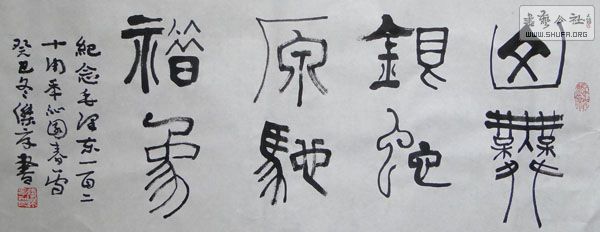 书艺公社
WWW.SHUFA.ORG
山舞
銀蛇
原馳
蜡象
紀念毛泽东一百二
十周年沁園春雪
癸巳冬傑書